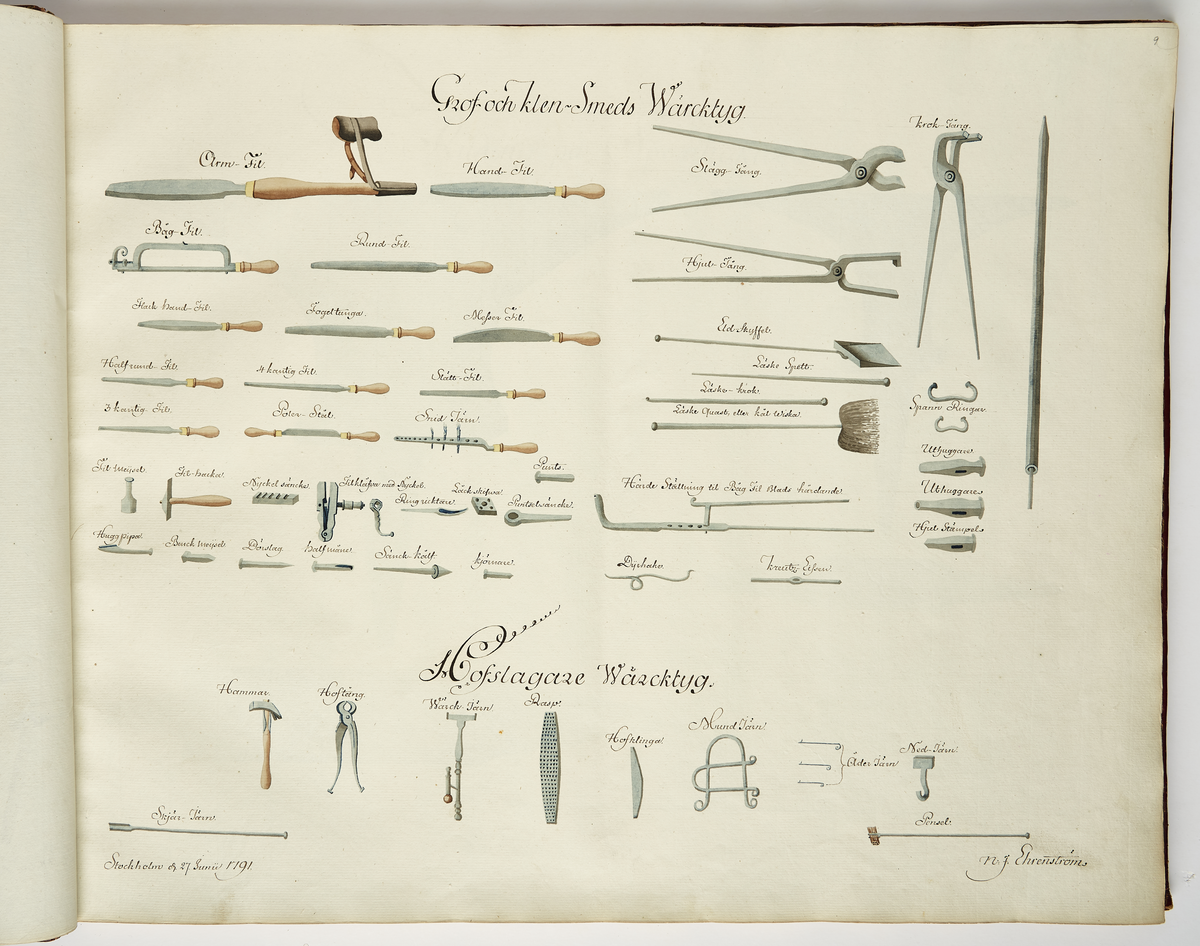 9
Grof och klen-Smeds Wärcktyg.
Arm-Fil.
Hand-Fil.
Slägg-Tång.
krok-Tång.
Båg-Fil.
Rund-Fil.
Hjul-Tång.
Flack hand-Fil.
Fogeltunga.
Messer Fil.
Eld Skyffel.
Läske Spett.
Halfrund-Fil.
4 kantig Fil.
Stött-Fil.
Läske-krok.
Spann Ringar.
3 kantig Fil.
Poler-Stål.
Snid Järn.
Läske Quast, eller kål Wiska.
Uthuggare
Fil mejsel.
Fil-hacka.
Nyckel säncke.
Filklåfva med Nyckel.
Ring ricktare.
Låck skifwa.
Punts.
Puntsel säncke.
Härde Ställning til Båg Fil Blads härdande.
Uthuggare
Hjul Stämpel
Hugg pipa.
Benck mejsel
Dörslag.
halfmåne.
Sänck-kålf.
kjörnare.
Dyrhake.
kreutz-Eissen.
Hofslagare Wärcktyg.
Hammar.
Hoftång.
Wärck-Järn.
Rasp.
Hofklinga.
Mund Järn.
Åder Järn
Nod-Järn.
Skjär-Järn.
Pensel.
Stockholm d. 27 Junii 1791.
N. J. Ehrenström.